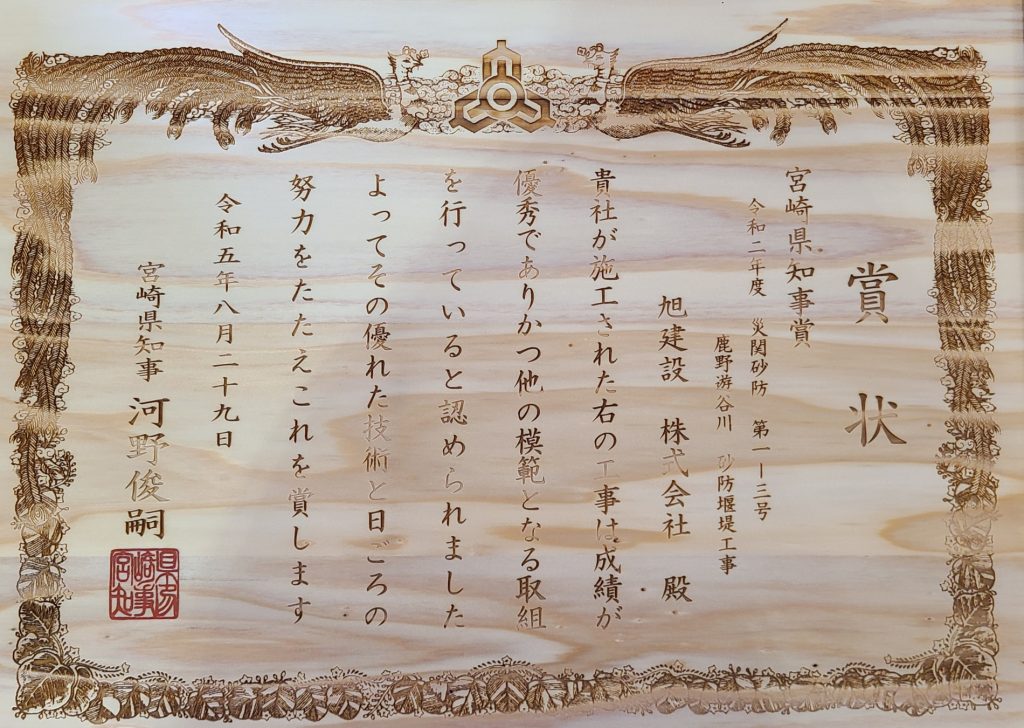 賞状
宮崎県知事賞
令和二年度　災関砂防　第一―三号
鹿野游谷川　砂防堰堤工事
旭建設　株式会社　殿
貴社が施工された右の工事は成績が
優秀でありかつ他の模範となる取組
を行っていると認められました
よってその優れた技術と日ごろの
努力をたたえこれを賞します
令和五年八月二十九日
宮崎県知事　河野俊嗣